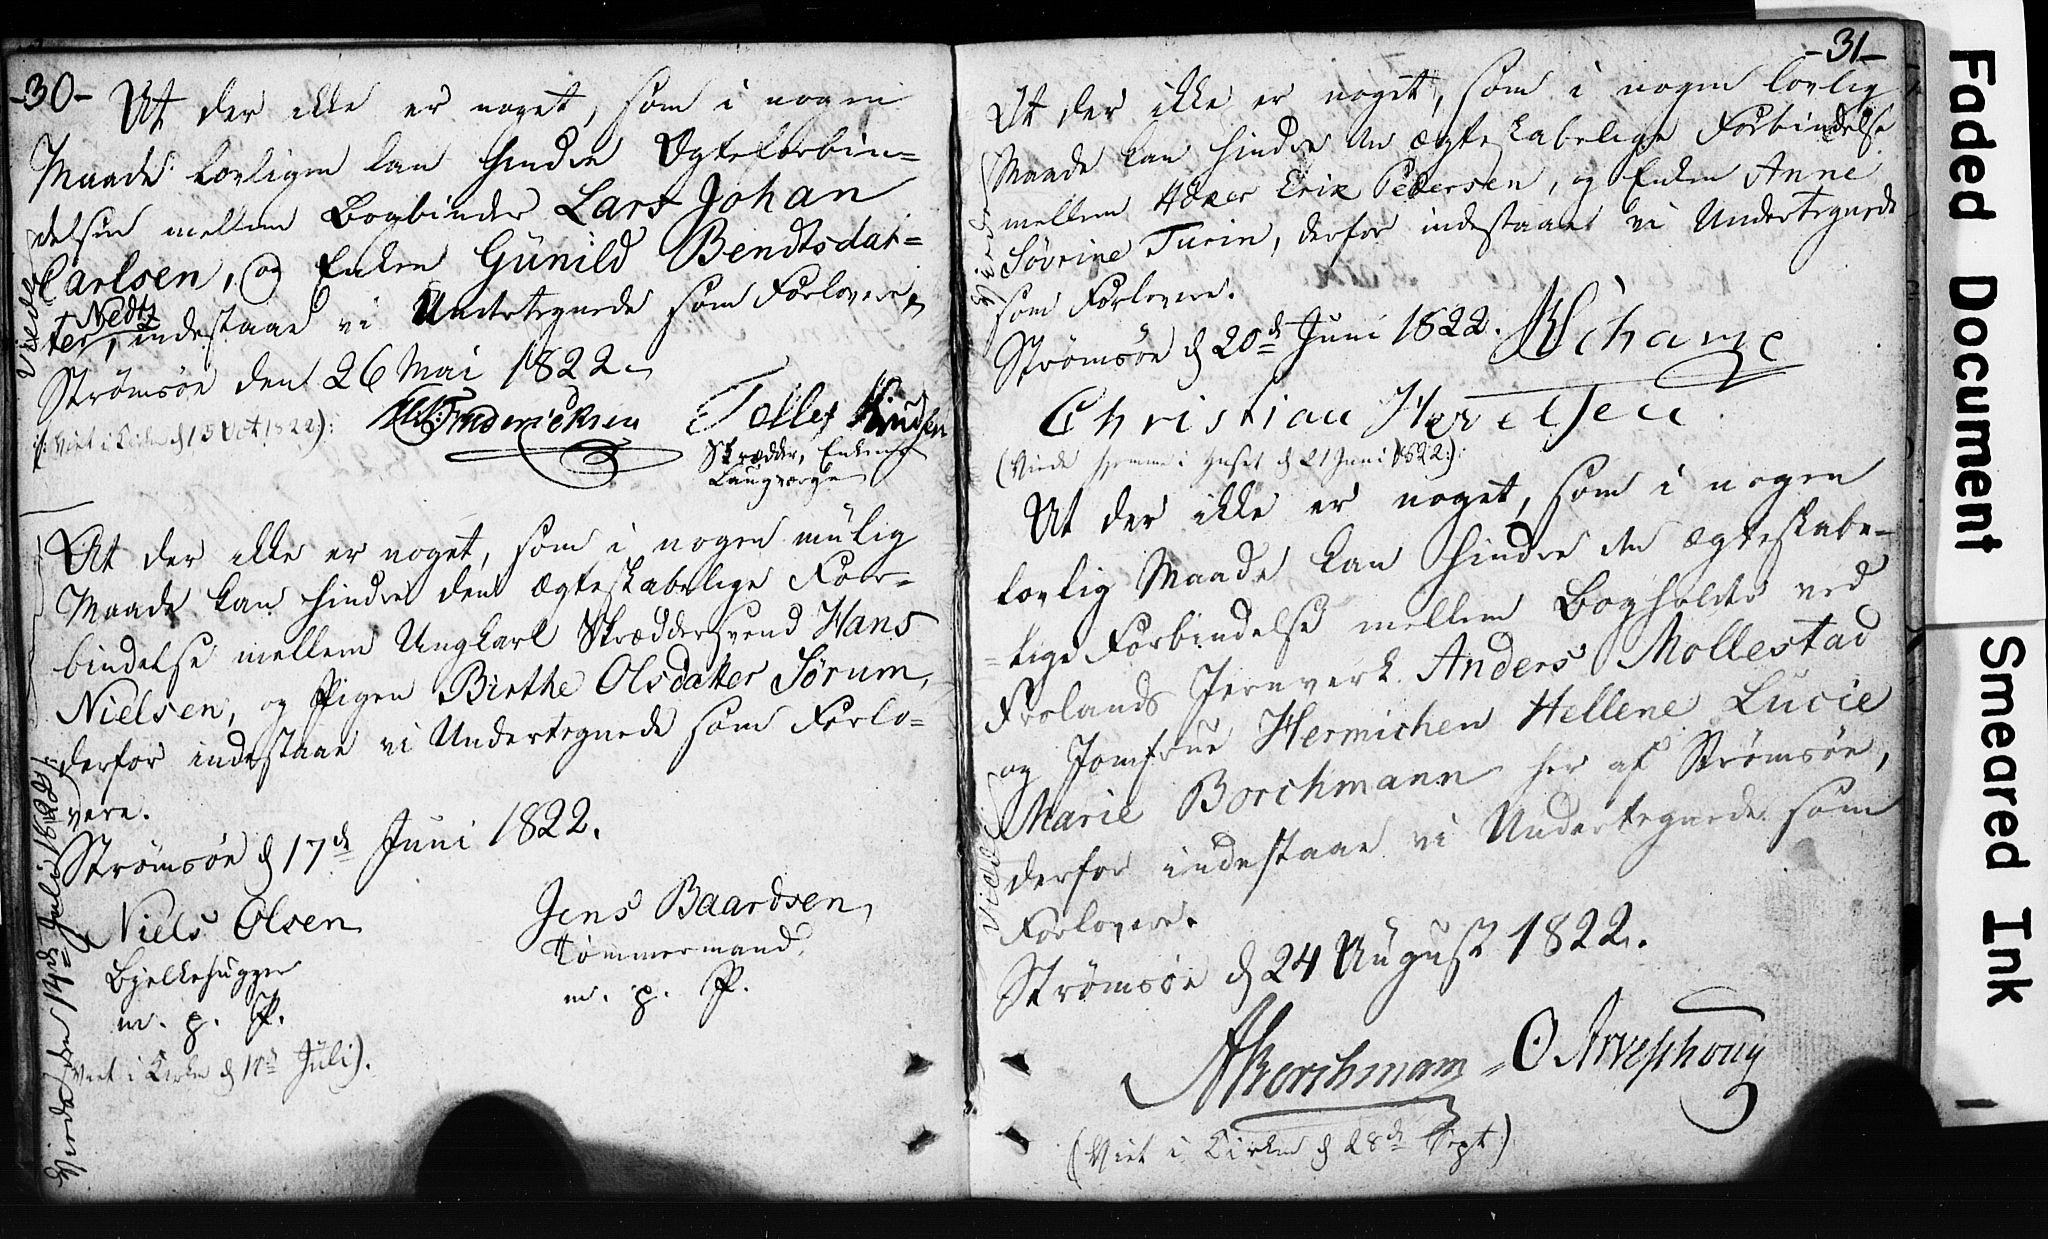 -30-
At der ikke er noget, som i nogen
Maade lovligen kan hindre Ægteforbin=
delsen mellem Bogbinder Lars Johan
Carlsen, og Enken Gunild Bendtsdat=
ter, Nedtz indestaae vi Undertegnede som Forlovere,
Strømsøe den 26 Mai 1822.
(Viet i Kirken d 15 Oct 1822):
Frederichsen Tollef Knudsen
Skrædder, Enkens
Laugværge
At der ikke er noget, som i nogen mulig
Maade kan hindre den ægteskabelige For=
bindelse mellem Ungkarl Skræddersvend Hans
Nielsen, og Pigen Birthe Olsdatter Sørum,
derfor indestaae vi Undertegnede som Forlo=
vere.
Strømsøe d 17de Juni 1822.
Niels Olsen Jens Baardsen,
Bjelkehugger Tømmermand.
m. p. P. m. p. P.
Viet i Kirken d Juli).
Viede
Viede den 14de Juli 1822
-31-
At der ikke er noget, som i nogen lovlig
Maade kan hindre den ægteskabelige Forbindelse
mellem Høker Erik Pedersen, og Enken Anne
Søvrine Turin, derfor indestaaer vi Undertegnede
som Forlovere.
Strømsøe d 20de Juni 1822. Schame
Christian Hoxelsen
(Viede hjemme i Huset d 21 Juni 1822):
At der ikke er noget, som i nogen
lovlig Maade kan hindre den ægteskabe-
=lige Forbindelse mellem Bogholder ved
Frolands Jernverk Anders Mollestad
og Jomfrue Hermichen Hellene Lucie
Marie Borchmann her af Strømsøe,
derfor indestaae vi Undertegnede som
Forlovere.
Strømsøe d 24 August 1822.
Borchmann O Arveschoug
(Viet i Kirken d 28de Sept:)
Viede
Viede
Faded Document
Smeared Ink